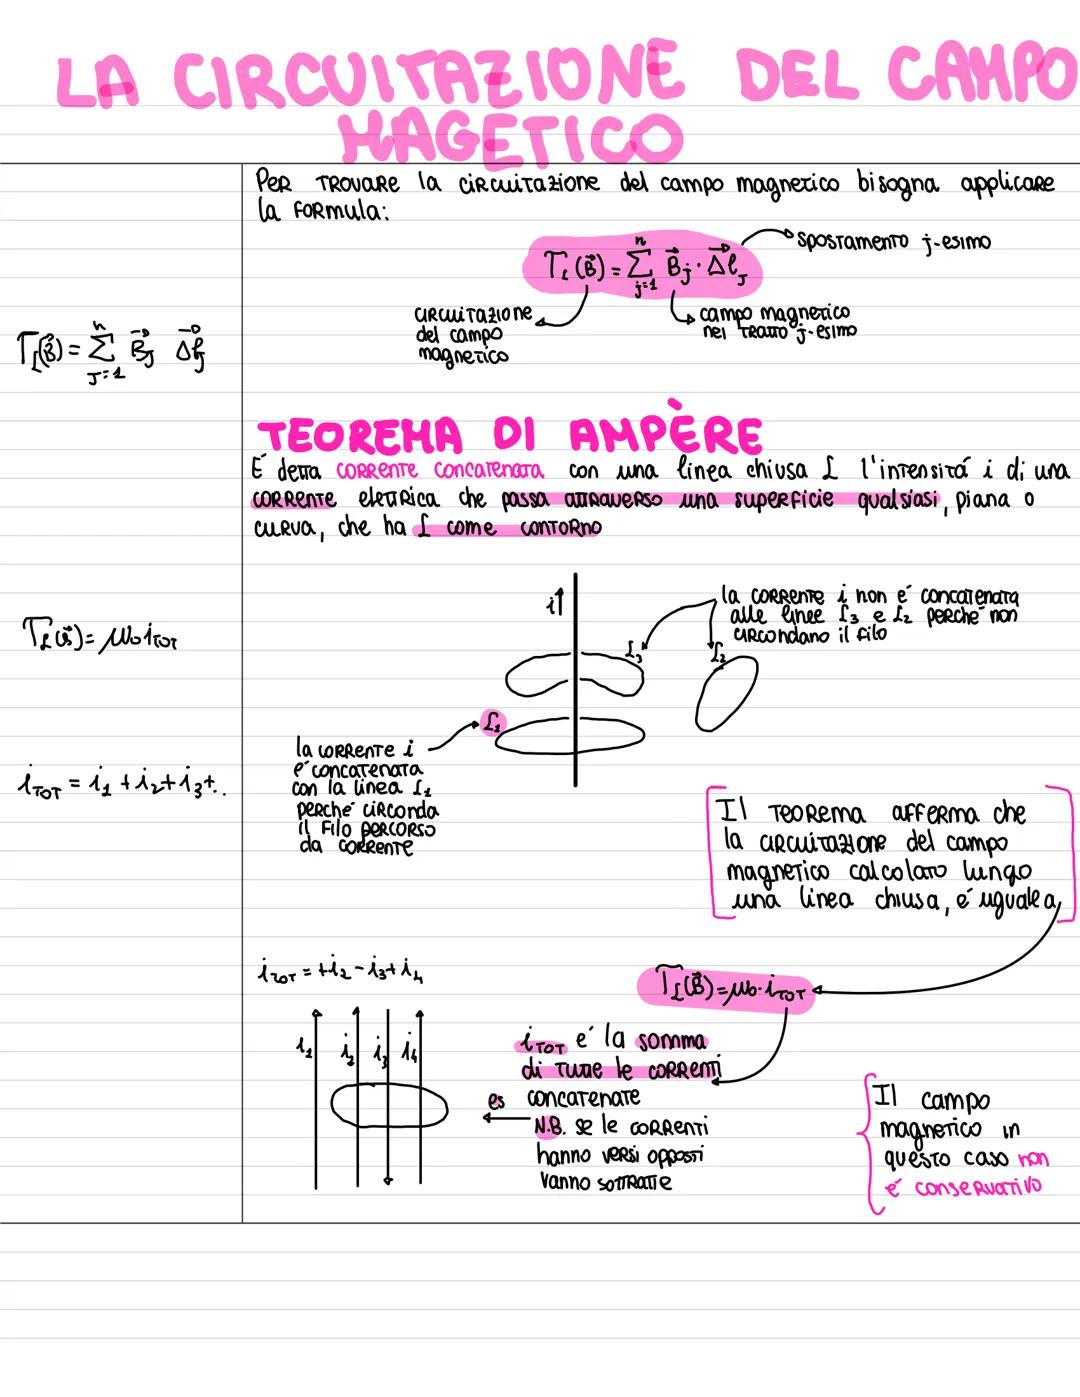 LA CIRCUITAZIONE DEL CAMPO
MAGETICO
PER TROVARE la circuitazione del campo magnetico bisogna applicare
la FORMULA:
Γ_L(B⃗) = Σ_{j=1}^{n} B⃗_j · Δl⃗_J
spostamento j-esimo
circuitazione
del campo
magnetico
campo magnetico
nel tratto j-esimo
Γ_L(B⃗) = Σ_{J=1}^{n} B⃗_J Δl⃗_J
TEOREMA DI AMPÈRE
É detta corrente concatenata con una linea chiusa L l'intensitá i di una
corrente elettrica che passa attraverso una superficie qualsiasi, piana o
curva, che ha L come contorno
i↑
la corrente i non é concatenata
alle linee L3 e L2 perché non
circondano il filo
Γ_L(B⃗) = μ0 i_TOT
L3
L2
L1
la corrente i
é concatenata
con la linea L1
perché circonda
il filo percorso
da corrente
i_TOT = i1 + i2 + i3 + ..
Il teorema afferma che
la circuitazione del campo
magnetico calcolato lungo
una linea chiusa, é uguale a
i_TOT = +i2 - i3 + i4
Γ_L(B⃗) = μ0 · i_TOT
i1 i2 i3 i4
i_TOT é la somma
di tutte le correnti
es concatenate
N.B. se le correnti
hanno versi opposti
vanno sottratte
Il campo
magnetico in
questo caso non
é conservativo